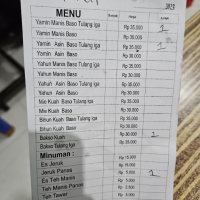 MENU Banyak Harga Jumlah
Yamin Manis Baso Tulang Iga Rp 35.000 1
Yamin Manis Baso Rp 30.000
Yamin Asin Baso Tulang Iga Rp 35.000 1
Yamin Asin Baso Rp 30.000
Yahun Manis Baso Tulang Iga Rp 35.000
Yahun Manis Baso Rp 30.000
Yahun Asin Baso Tulang Iga Rp 35.000
Yahun Asin Baso Rp 30.000
Mie Kuah Baso Tulang Iga Rp 35.000
Mie Kuah Baso Rp 30.000
Bihun Kuah Baso Tulang Iga Rp 35.000
Bihun Kuah Baso Rp 30.000
Bakso Kuah Rp 30.000 1
Bakso Tulang Iga
Minuman :
Es Jeruk Rp 15.000
Jeruk Panas Rp 15.000
Es Teh Manis Rp 5.000 1
Teh Manis Panas Rp 5.000
Teh Tawar